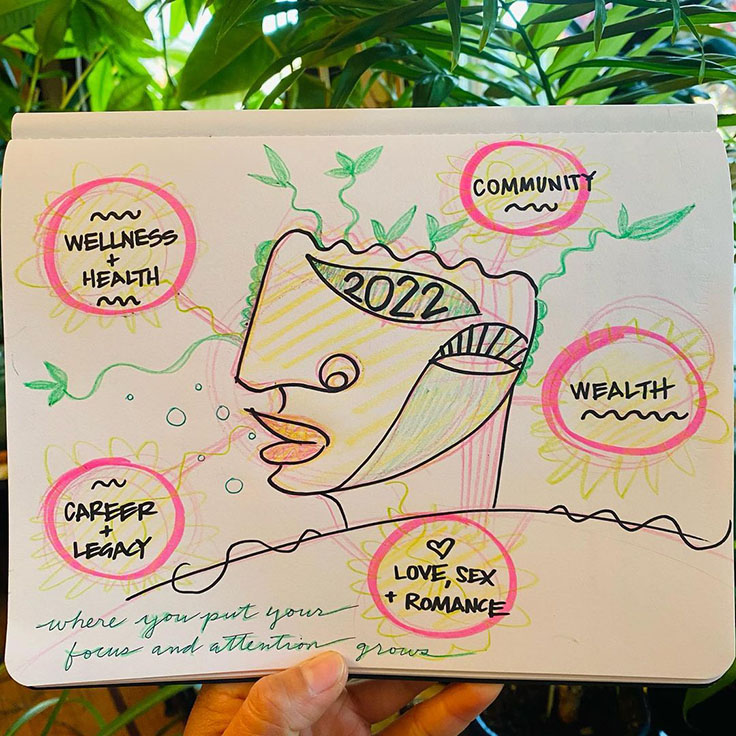 COMMUNITY
WELLNESS
+
HEALTH
2022
WEALTH
CAREER
+
LEGACY
LOVE, SEX
+ ROMANCE
where you put your
focus and attention grows